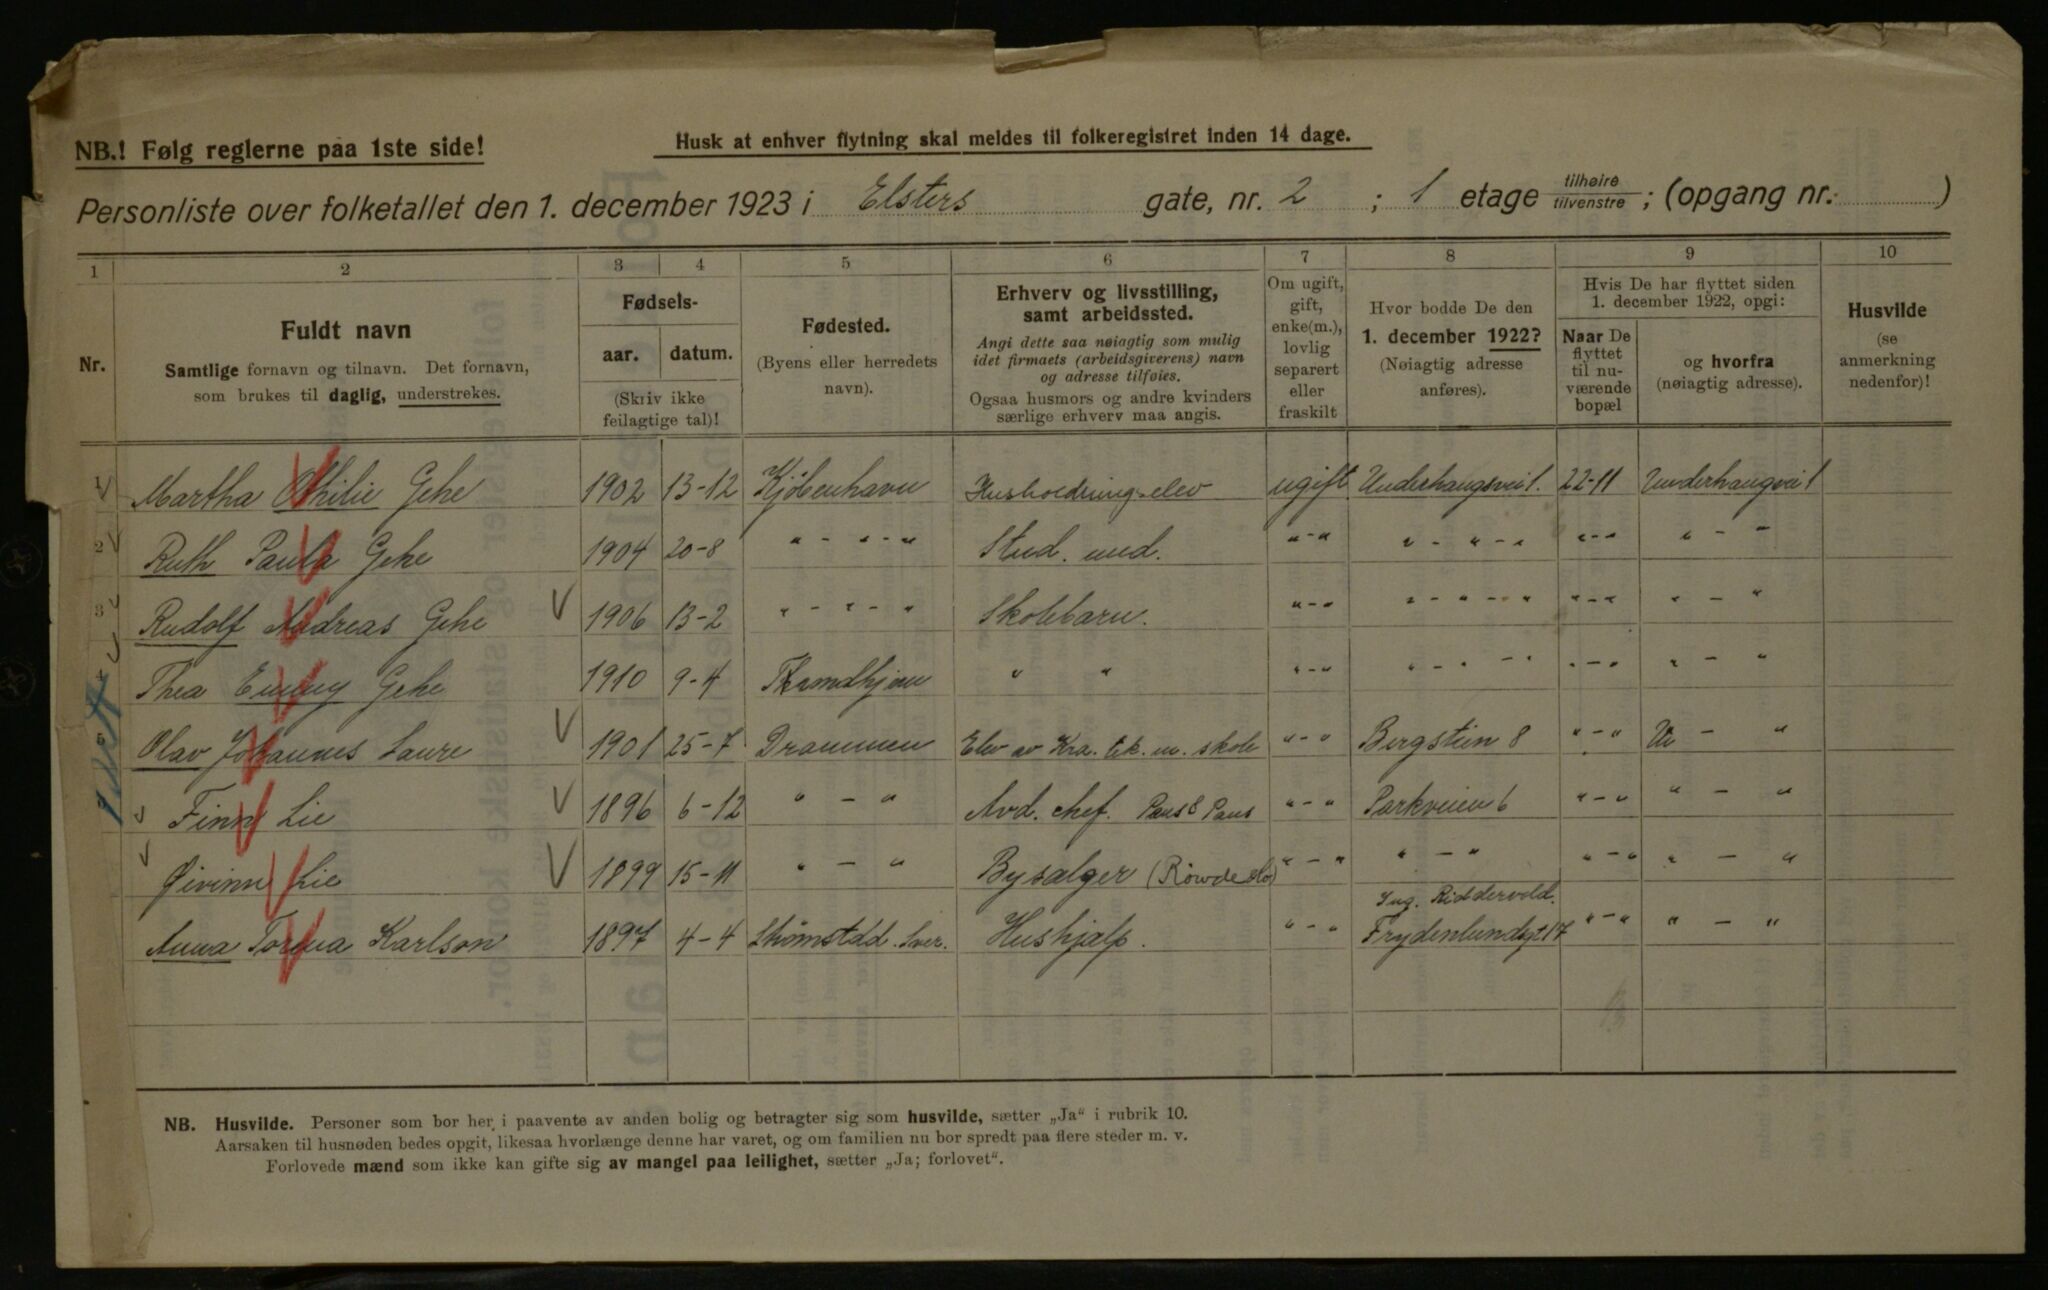 NB.! Følg reglerne paa 1ste side!
Husk at enhver flytning skal meldes til folkeregistret inden 14 dage.
Personliste over folketallet den 1. december 1923 i Elsters gate, nr. 2 ; 1 etage tilhøire tilvenstre ; (opgang nr. )
1 2 3 4 5 6 7 8 9 10
Nr.
Fuldt navn
Samtlige fornavn og tilnavn. Det fornavn,
som brukes til daglig, understrekes.
Fødsels-
aar. datum.
(Skriv ikke
feilagtige tal)!
Fødested.
(Byens eller herredets
navn).
Erhverv og livsstilling,
samt arbeidssted.
Angi dette saa nøiagtig som mulig
idet firmaets (arbeidsgiverens) navn
og adresse tilføies.
Ogsaa husmors og andre kvinders
særlige erhverv maa angis.
Om ugift,
gift,
enke(m.),
lovlig
separert
eller
fraskilt
Hvor bodde De den
1. december 1922?
(Nøiagtig adresse
anføres).
Hvis De har flyttet siden
1. december 1922, opgi:
Naar De
flyttet
til nu-
værende
bopæl
og hvorfra
(nøiagtig adresse).
Husvilde
(se
anmerkning
nedenfor)!
1 Martha Othilie Gehe 1902 13-12 Kjøbenhavn Husholdning-elev ugift Underhaugsvei 1. 22-11 Underhaugvei 1
2 Ruth Paula Gehe 1904 20-8 " - " - " Stud. med. " - " " - " - " " - " " - "
3 Rudolf Andreas Gehe 1906 13-2 " - " - " Skolebarn. " - " " - " - " " - " " - "
4 Thea Emmy Gehe 1910 9-4 Trondhjem " " " - " " - " - " " - " " - "
5 Olav Johannes Laure 1901 25-7 Drammen Elev av Kra. tek. m. skole " - " Bergstien 8 " - " " - "
Finn Lie 1896 6-12 " - " Avd. chef. Paus & Paus " - " Parkveien 6 " - " " - "
Øivinn Lie 1899 15-11 " - " Bysælger " - " " - " " - " " - "
Ing. Riddervold.
Anna Torina Karlson 1897 4-4 Strømstad. Sver. Hushjælp. " - " Frydenlundgt 17 " - " " - "
NB. Husvilde. Personer som bor her i paavente av anden bolig og betragter sig som husvilde, sætter „Ja“ i rubrik 10.
Aarsaken til husnøden bedes opgit, likesaa hvorlænge denne har varet, og om familien nu bor spredt paa flere steder m. v.
Forlovede mænd som ikke kan gifte sig av mangel paa leilighet, sætter „Ja; forlovet“.